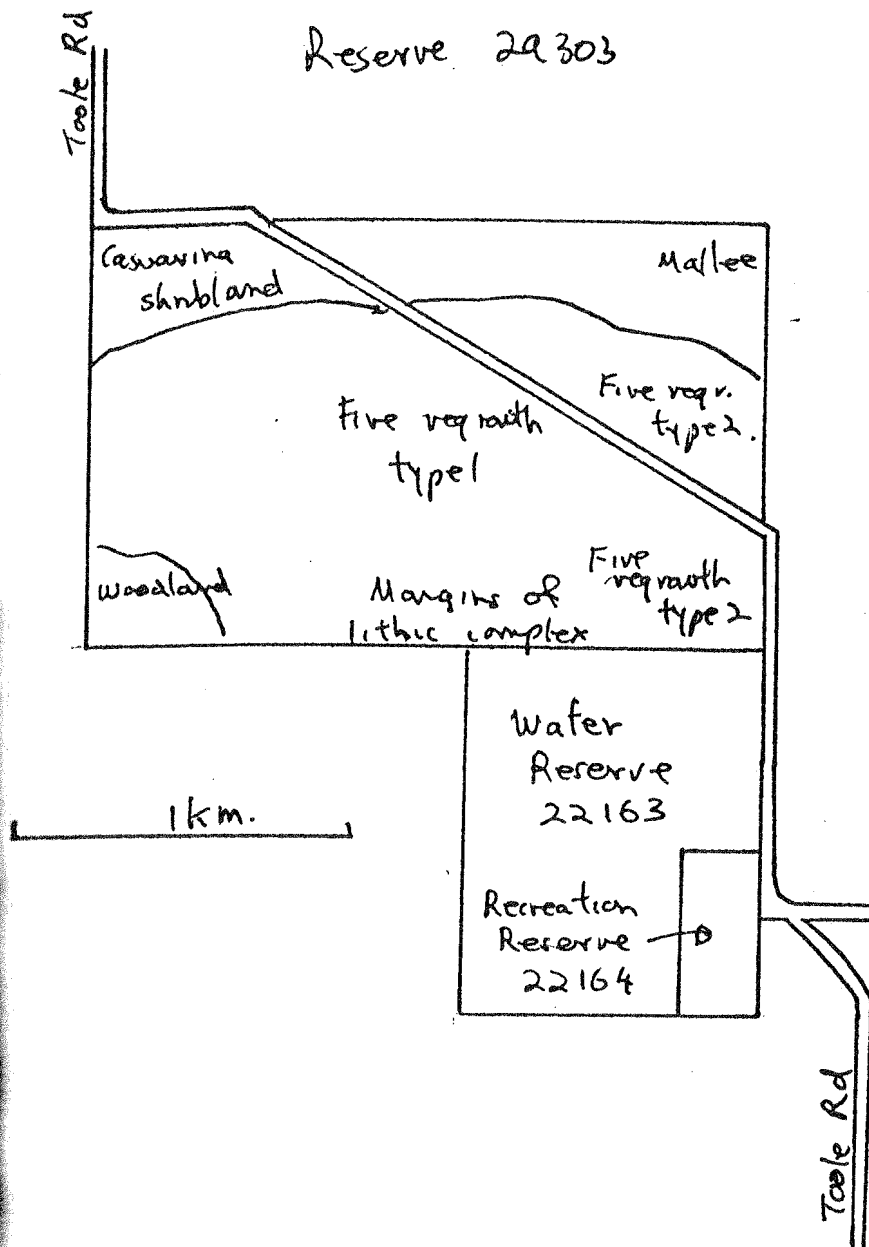 Reserve 29303
Toole Rd
Casuarina
shrubland
Mallee
Fire regr.
type 2.
Fire regrowth
type 1
Fire
regrowth
type 2
Woodland
Margins of
lithic complex
Water
Reserve
22163
1 km.
Recreation
Reserve
22164
Toole Rd